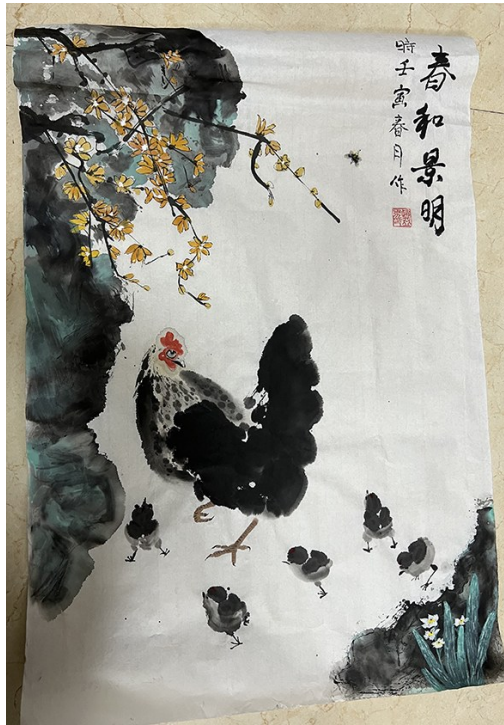 春和景明
時壬寅春月作